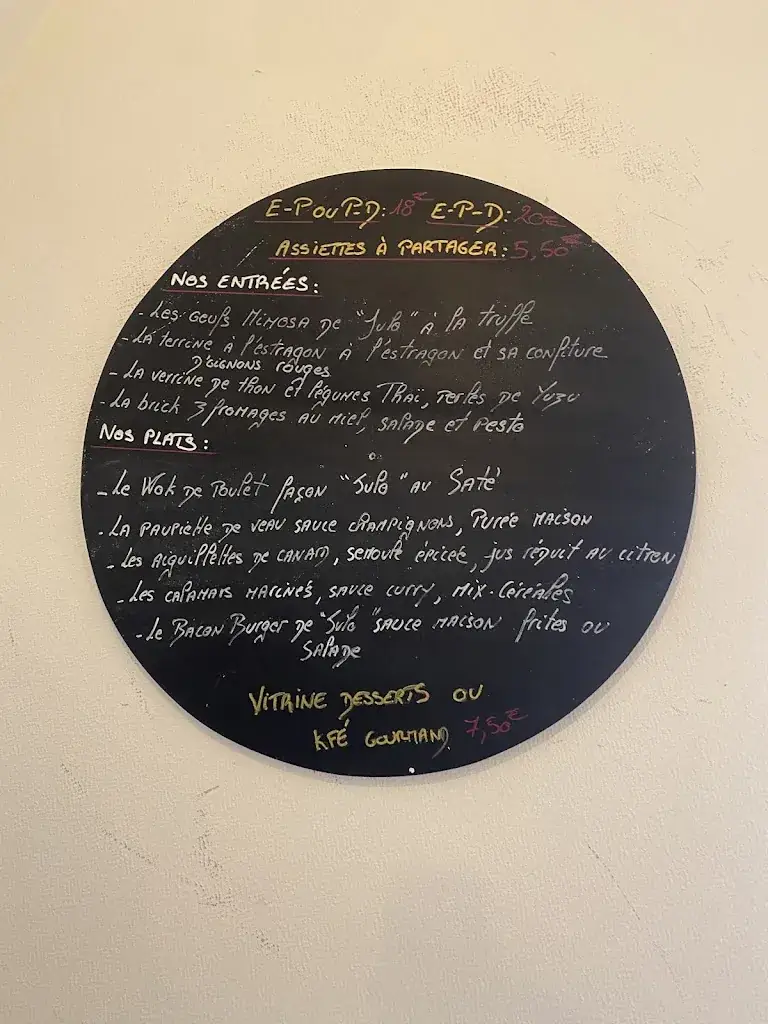 E-P OU P-D: 18€ E-P-D: 20€
ASSIETTES À PARTAGER: 5,50€
NOS ENTRÉES:
- Les oeufs Mimosa de "Julo" à la truffe
- La terrine à l'estragon à l'estragon et sa confiture
D'oignons rouges
- La verrine de thon et légumes Thaï, perles de Yuzu
- La brick 3 fromages au miel, salade et pesto
NOS PLATS:
- Le Wok de Poulet façon "Julo" au Saté
- La paupiette de veau sauce champignons, Purée maison
- Les aiguillettes de canard, semoule épicée, jus réduit au citron
- Les calamars marinés, sauce curry, mix-céréales
- Le Bacon Burger de "Julo" sauce maison frites ou
salade
VITRINE DESSERTS OU
KFÉ GOURMAND 7,50€